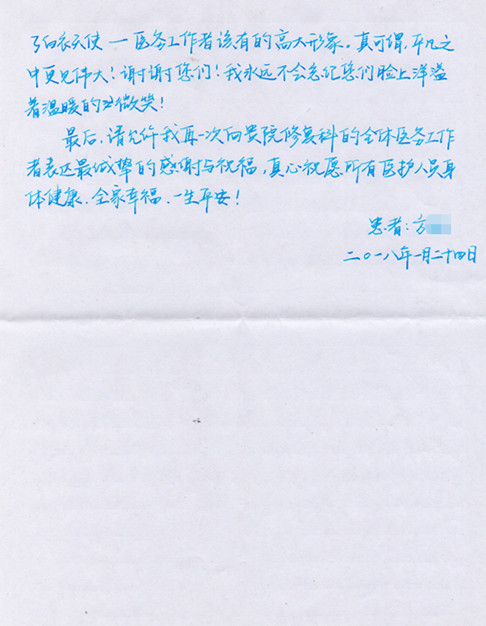 了白衣天使—医务工作者该有的高大形象。真可谓,平凡之
中更见伟大！谢谢您们！我永远不会忘记您们脸上洋溢
着温暖的微笑！
最后,请允许我再一次向贵院修复科的全体医务工作
者表达最诚挚的感谢与祝福,真心祝愿所有医护人员身
体健康、全家幸福、一生平安！
患者：方
二〇一八年一月二十四日